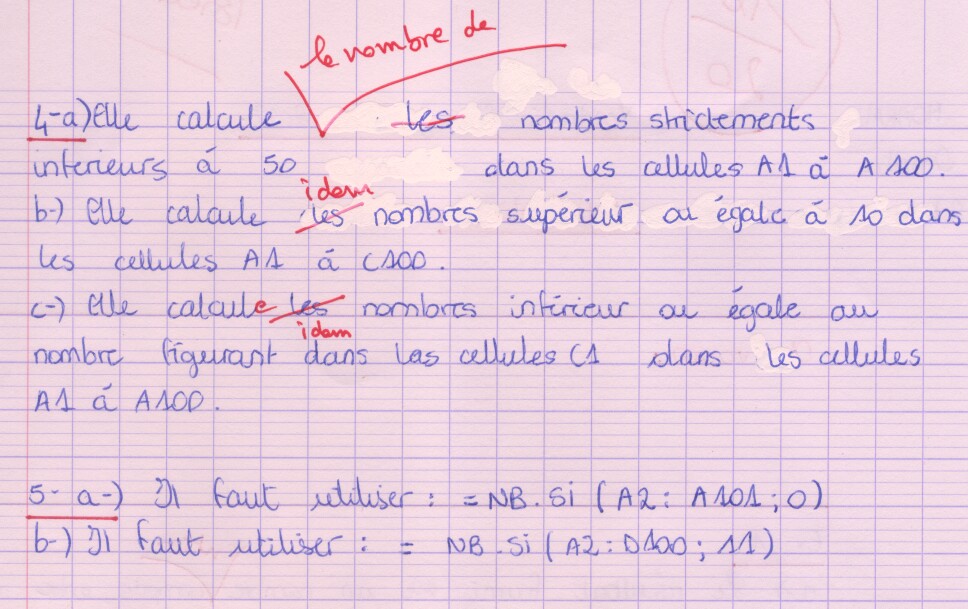 le nombre de
4-a) Elle calcule les nombres strictements
inferieurs à 50 dans les cellules A1 à A100.
idem
b-) Elle calcule les nombres supérieur ou égale à 10 dans
les cellules A1 à C100.
c-) Elle calcule les nombres inférieur ou égale au
idem
nombre figurant dans las cellules C1 dans les cellules
A1 à A100.
5- a-) Il faut utiliser : =NB.Si (A2: A101; 0)
b-) Il faut utiliser : = NB.Si (A2:D100; 11)